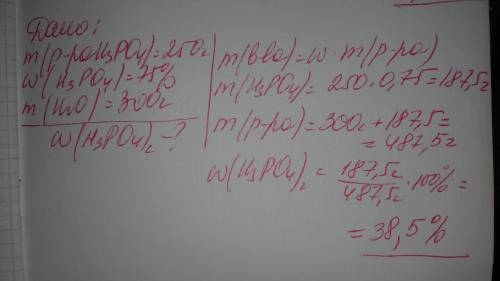 Дано:
m(р-раH₃PO₄)=250г
w(H₃PO₄)=75%
m(H₂O)=300г
w(H₃PO₄)₂-?
m(в-ва)=w·m(р-ра)
m(H₃PO₄)=250·0,75=187,5г
m(р-ра)=300г+187,5=
=487,5г
w(H₃PO₄)₂=187,5г/487,5г·100%=
=38,5%